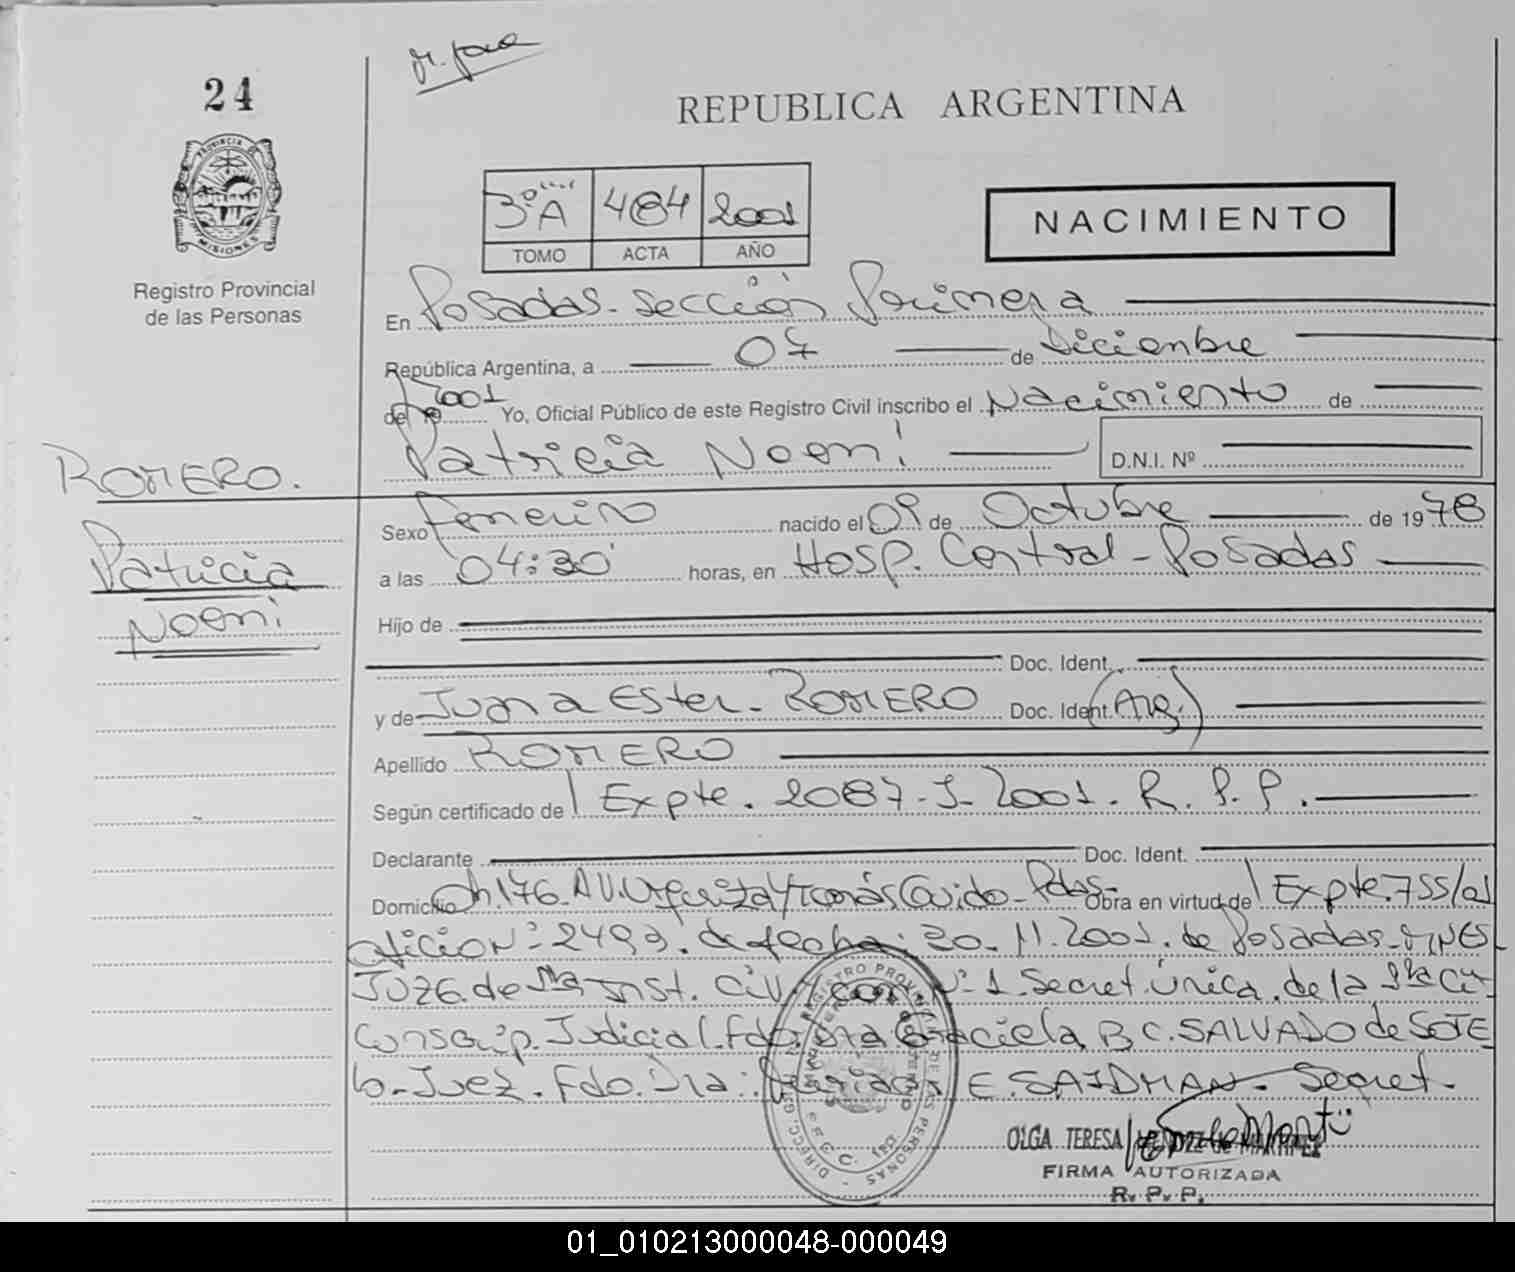 24
REPUBLICA ARGENTINA
PROVINCIA DE
MISIONES
3º A 484 2001
TOMO ACTA AÑO
NACIMIENTO
Registro Provincial
de las Personas
En Posadas - sección Primera
República Argentina, a 07 de Diciembre
de 2001 Yo, Oficial Público de este Registro Civil inscribo el Nacimiento de
Patricia Noemi D.N.I. Nº
ROMERO.
Patricia
Noemi
Sexo Femenino nacido el 09 de Octubre de 1978
a las 04:30 horas, en Hosp. Central - Posadas
Hijo de
Doc. Ident.
y de Juana Ester - ROMERO Doc. Ident. (Arg.)
Apellido ROMERO
Según certificado de Expte. 2087-J-2001. R. P. P.
Declarante Doc. Ident.
Domicilio Ch. 176 - AV. Urquiza y Tomás Guido - Pdas - Obra en virtud de Expte. 755/01
oficio Nº 2493. de fecha: 30-11-2001. de Posadas - MNES
JUZG. de 1ra Inst. Civil y Com Nº 1 - Secret. Unica. de la 1ra Cir-
cunscrip. Judicial. Fdo: Dra Graciela B C. SALVADO de SOTE
lo - Juez. Fdo. Dra: E. SAIDMAN - Secret.
OLGA TERESA
FIRMA AUTORIZADA
R. P. P.
01_010213000048-000049